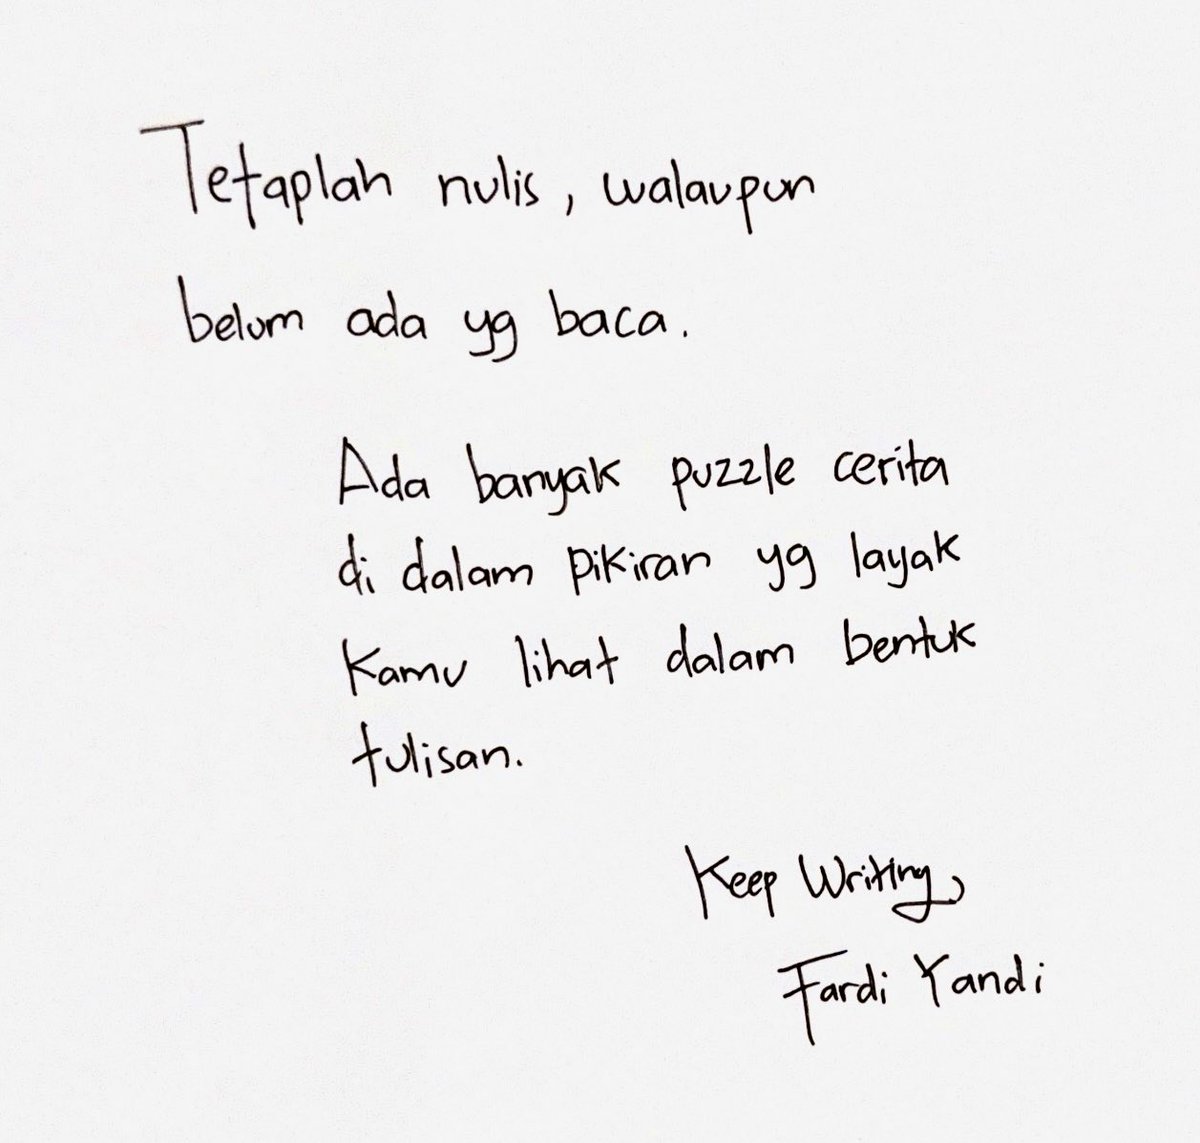 Tetaplah nulis, walaupun
belum ada yg baca.
Ada banyak puzzle cerita
di dalam pikiran yg layak
kamu lihat dalam bentuk
tulisan.
Keep Writing,
Fardi Yandi